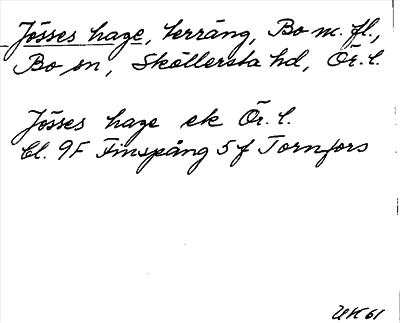 Jösses hage, terräng, Bo m. fl.,
Bo sn, Sköllersta hd, Ör. l.
Jösses hage ek Ör. l.
Bl. 9F Finspång 5 f Tornfors
UK 61